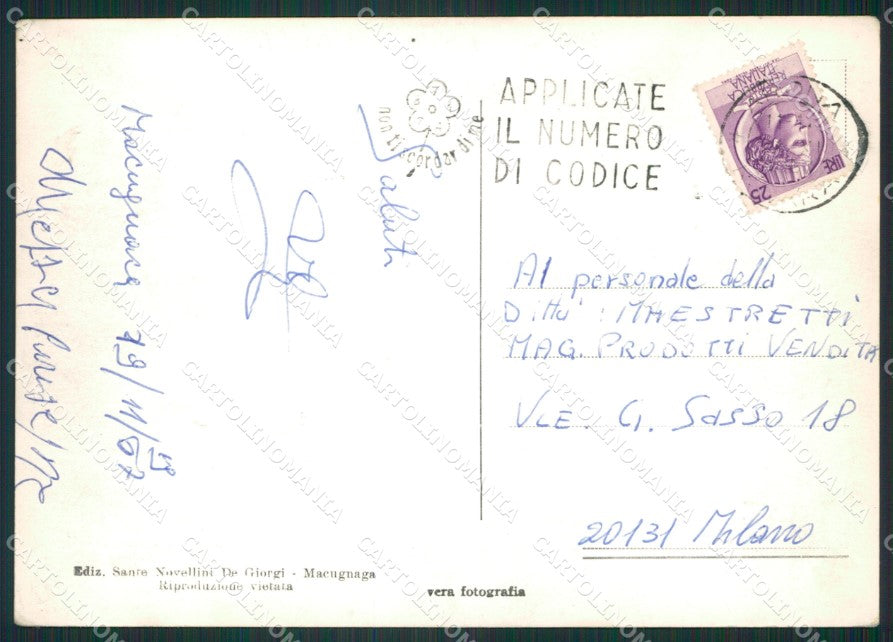 Macugnaga 19/11/67
Saluti
non ti scordar di me
APPLICATE
IL NUMERO
DI CODICE
REPUBBLICA
ITALIANA
LIRE 25
Al personale della
Ditta: MAESTRETTI
MAG. PRODOTTI VENDITA
VLE. G. Sasso 18
20131 Milano
Ediz. Sante Novellini De Giorgi - Macugnaga
Riproduzione vietata
vera fotografia
CARTOLINOMANIA